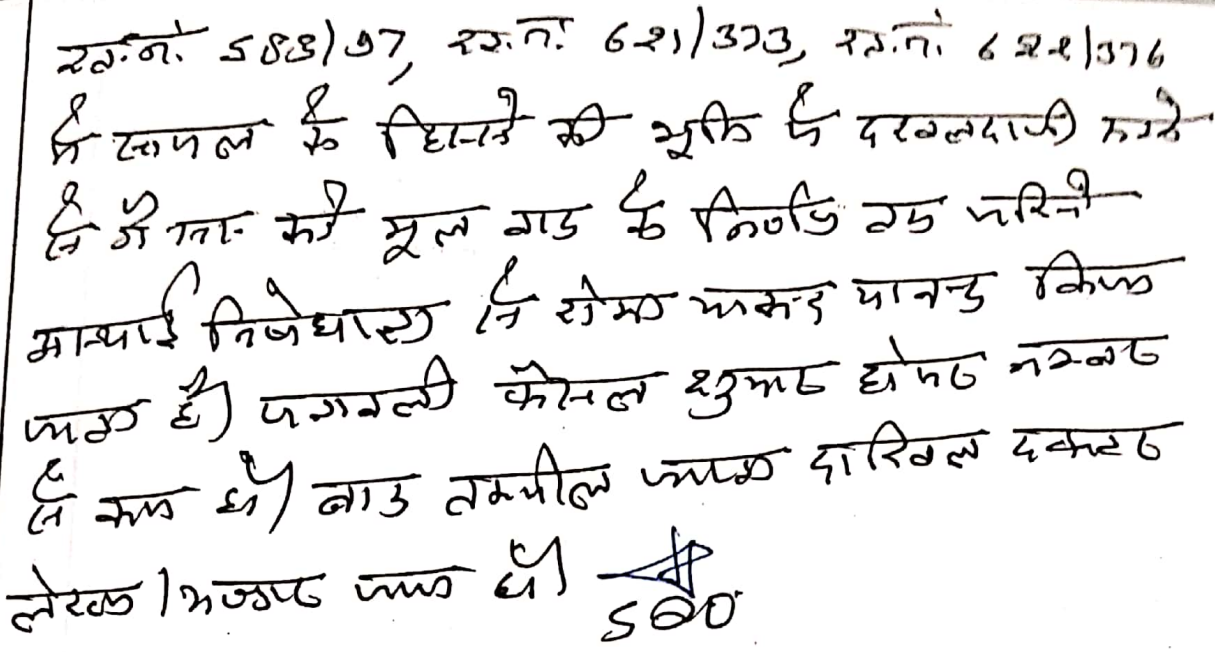 ख.नं. 583/97, ख.नं. 621/373, ख.नं. 622/376
में सायल के हिस्से की भूमि में दखलदाजी करने
से गैर सा. को मूल वाद के निर्णय तक जरिये
अस्थाई निषेधाज्ञा से रोका जाकर पाबन्द किया
जाता है। पत्रावली फैसल शुमार होकर नम्बर
से कम हो। बाद तकमील जाब्ता दाखिल दफ्तर
हो।
SDO